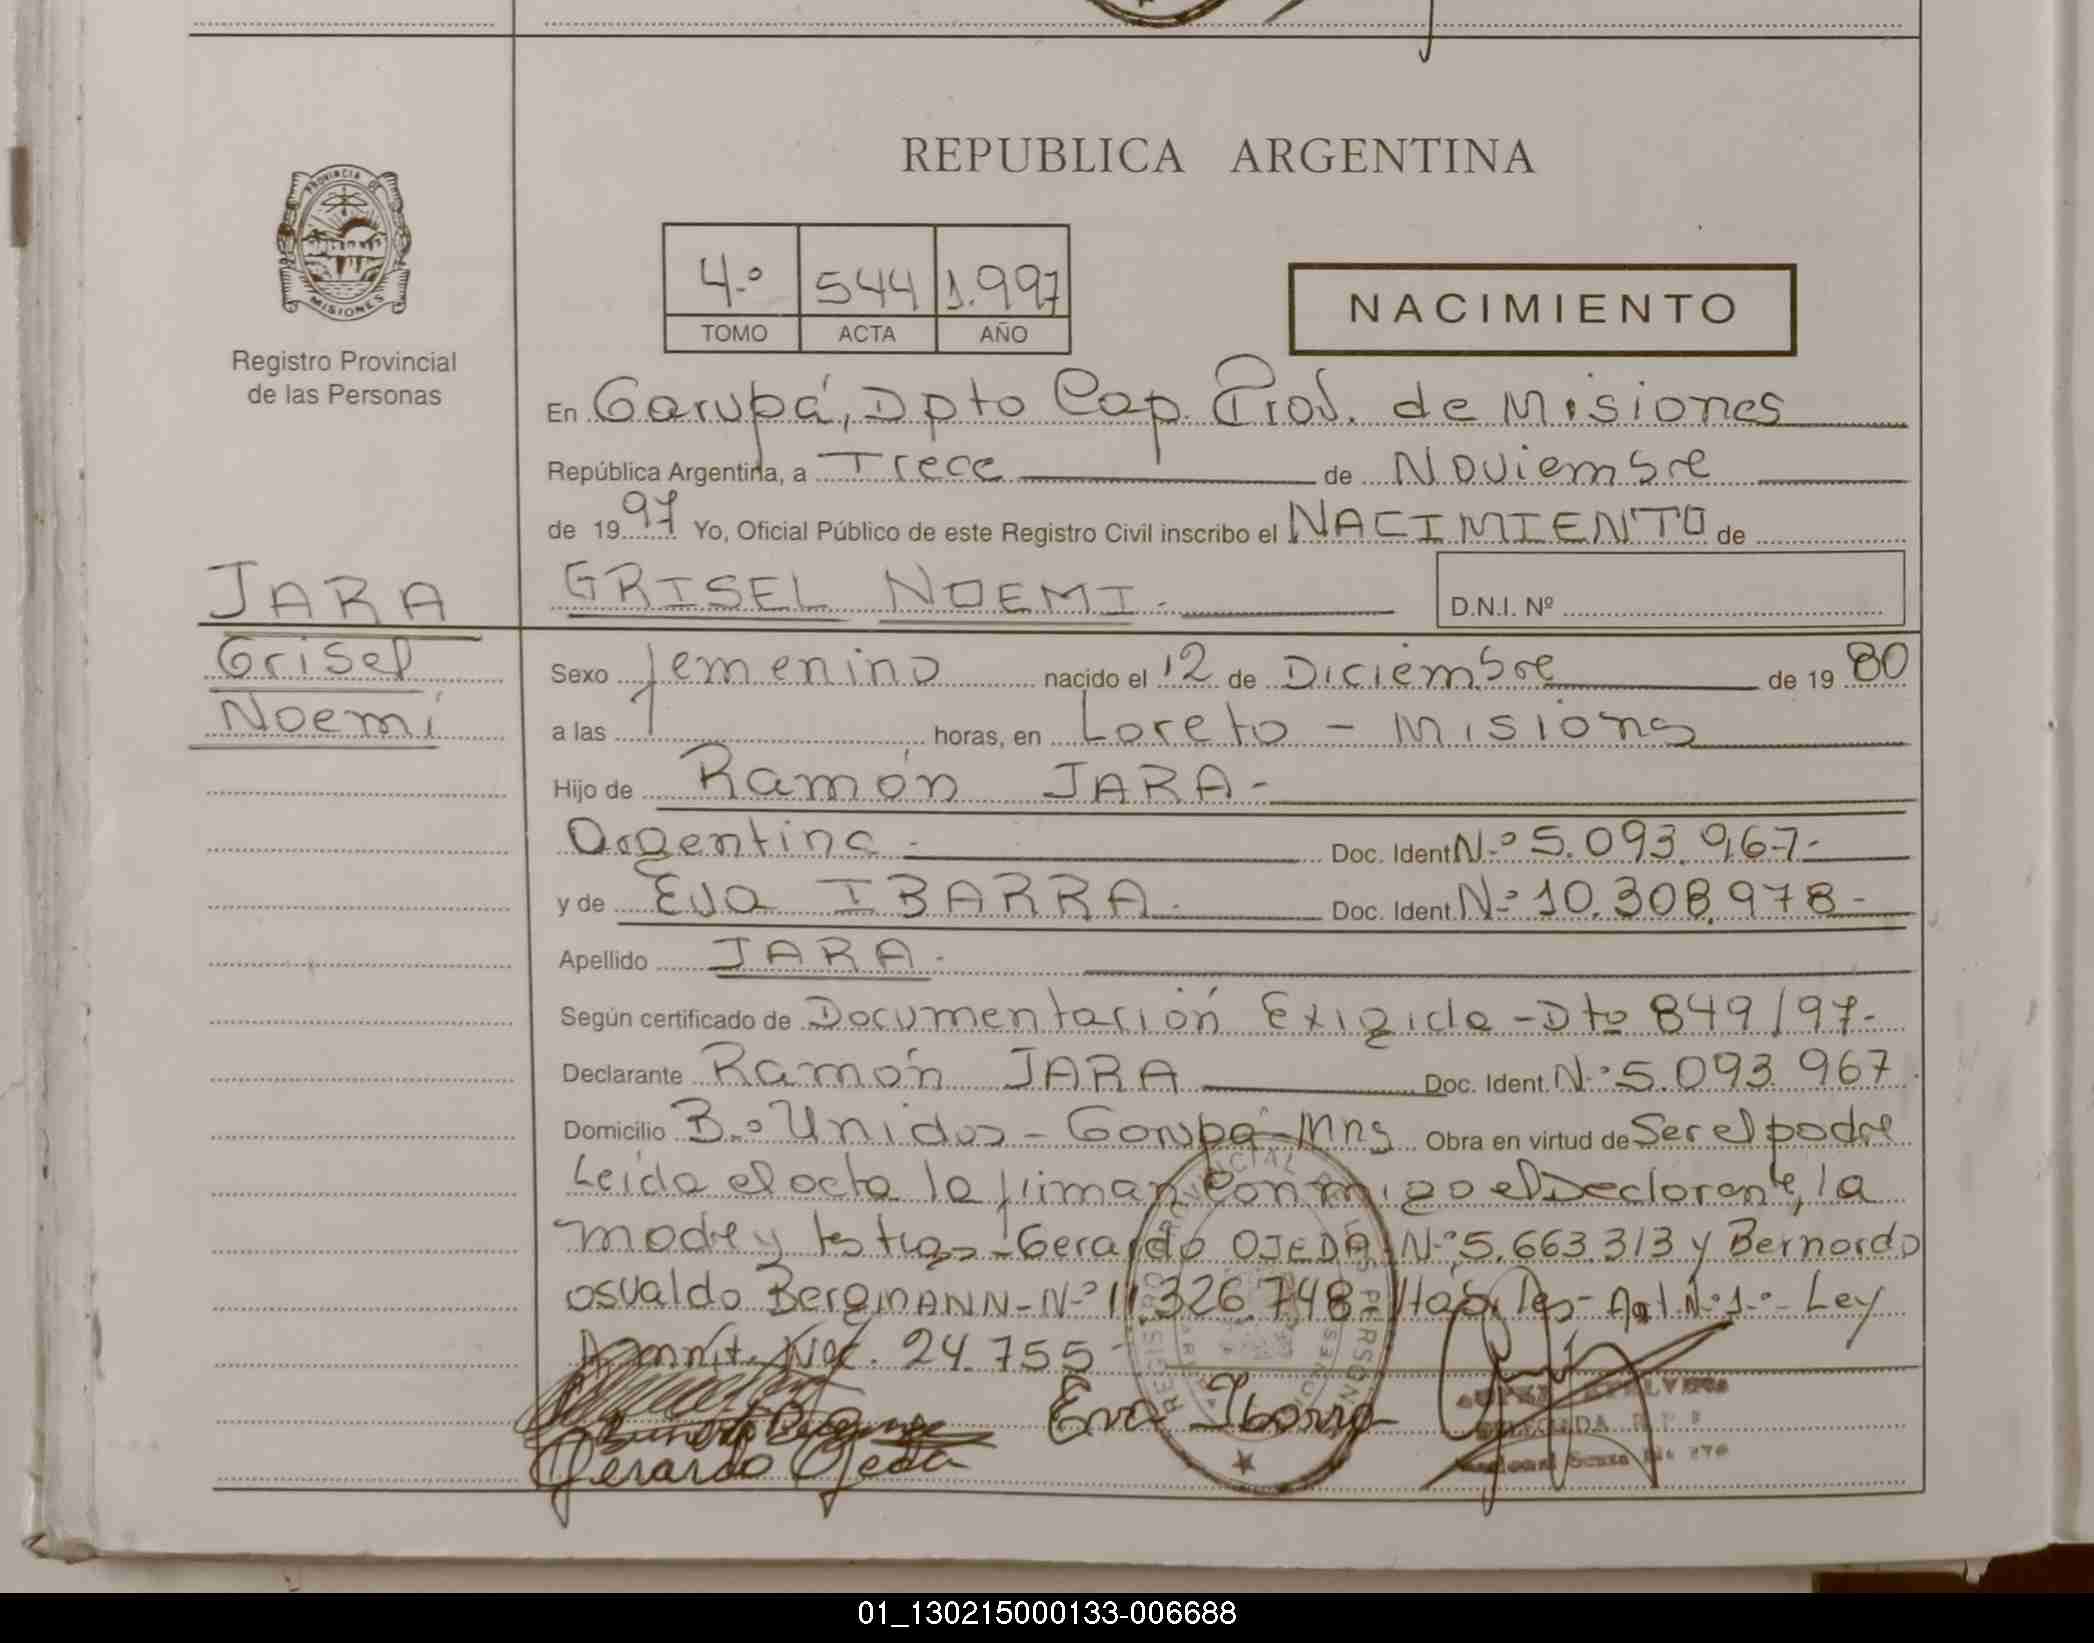 REPUBLICA ARGENTINA
PROVINCIA DE
MISIONES
Registro Provincial
de las Personas
4.º 544 1.997
TOMO ACTA AÑO
NACIMIENTO
En Garupá, Dpto Cap. Prov. de Misiones
República Argentina, a Trece de Noviembre
de 1997 Yo, Oficial Público de este Registro Civil inscribo el NACIMIENTO de
JARA
Grisel
Noemí
GRISEL NOEMI.
D.N.I. Nº
Sexo femenino nacido el 12 de Diciembre de 1980
a las horas, en Loreto - Misions
Hijo de Ramón JARA-
Argentina - Doc. Ident Nº 5.093.967-
y de Eva IBARRA. Doc. Ident. Nº 10.308.978-
Apellido JARA.
Según certificado de Documentación Exigida - Dto 849/97-
Declarante Ramón JARA Doc. Ident. Nº 5.093.967
Domicilio Bº Unidos - Garupá - Mns Obra en virtud de Ser el padre
Leída el acta la firman conmigo el Declarante, la
madre y testigos - Gerardo OJEDA Nº 5.663.313 y Bernardo
osvaldo BergMANN - Nº 11.326.748 Hábiles - Art. Nº 1º - Ley
Nac. 24.755
Eva Ibarra
Gerardo Ojeda
01_130215000133-006688